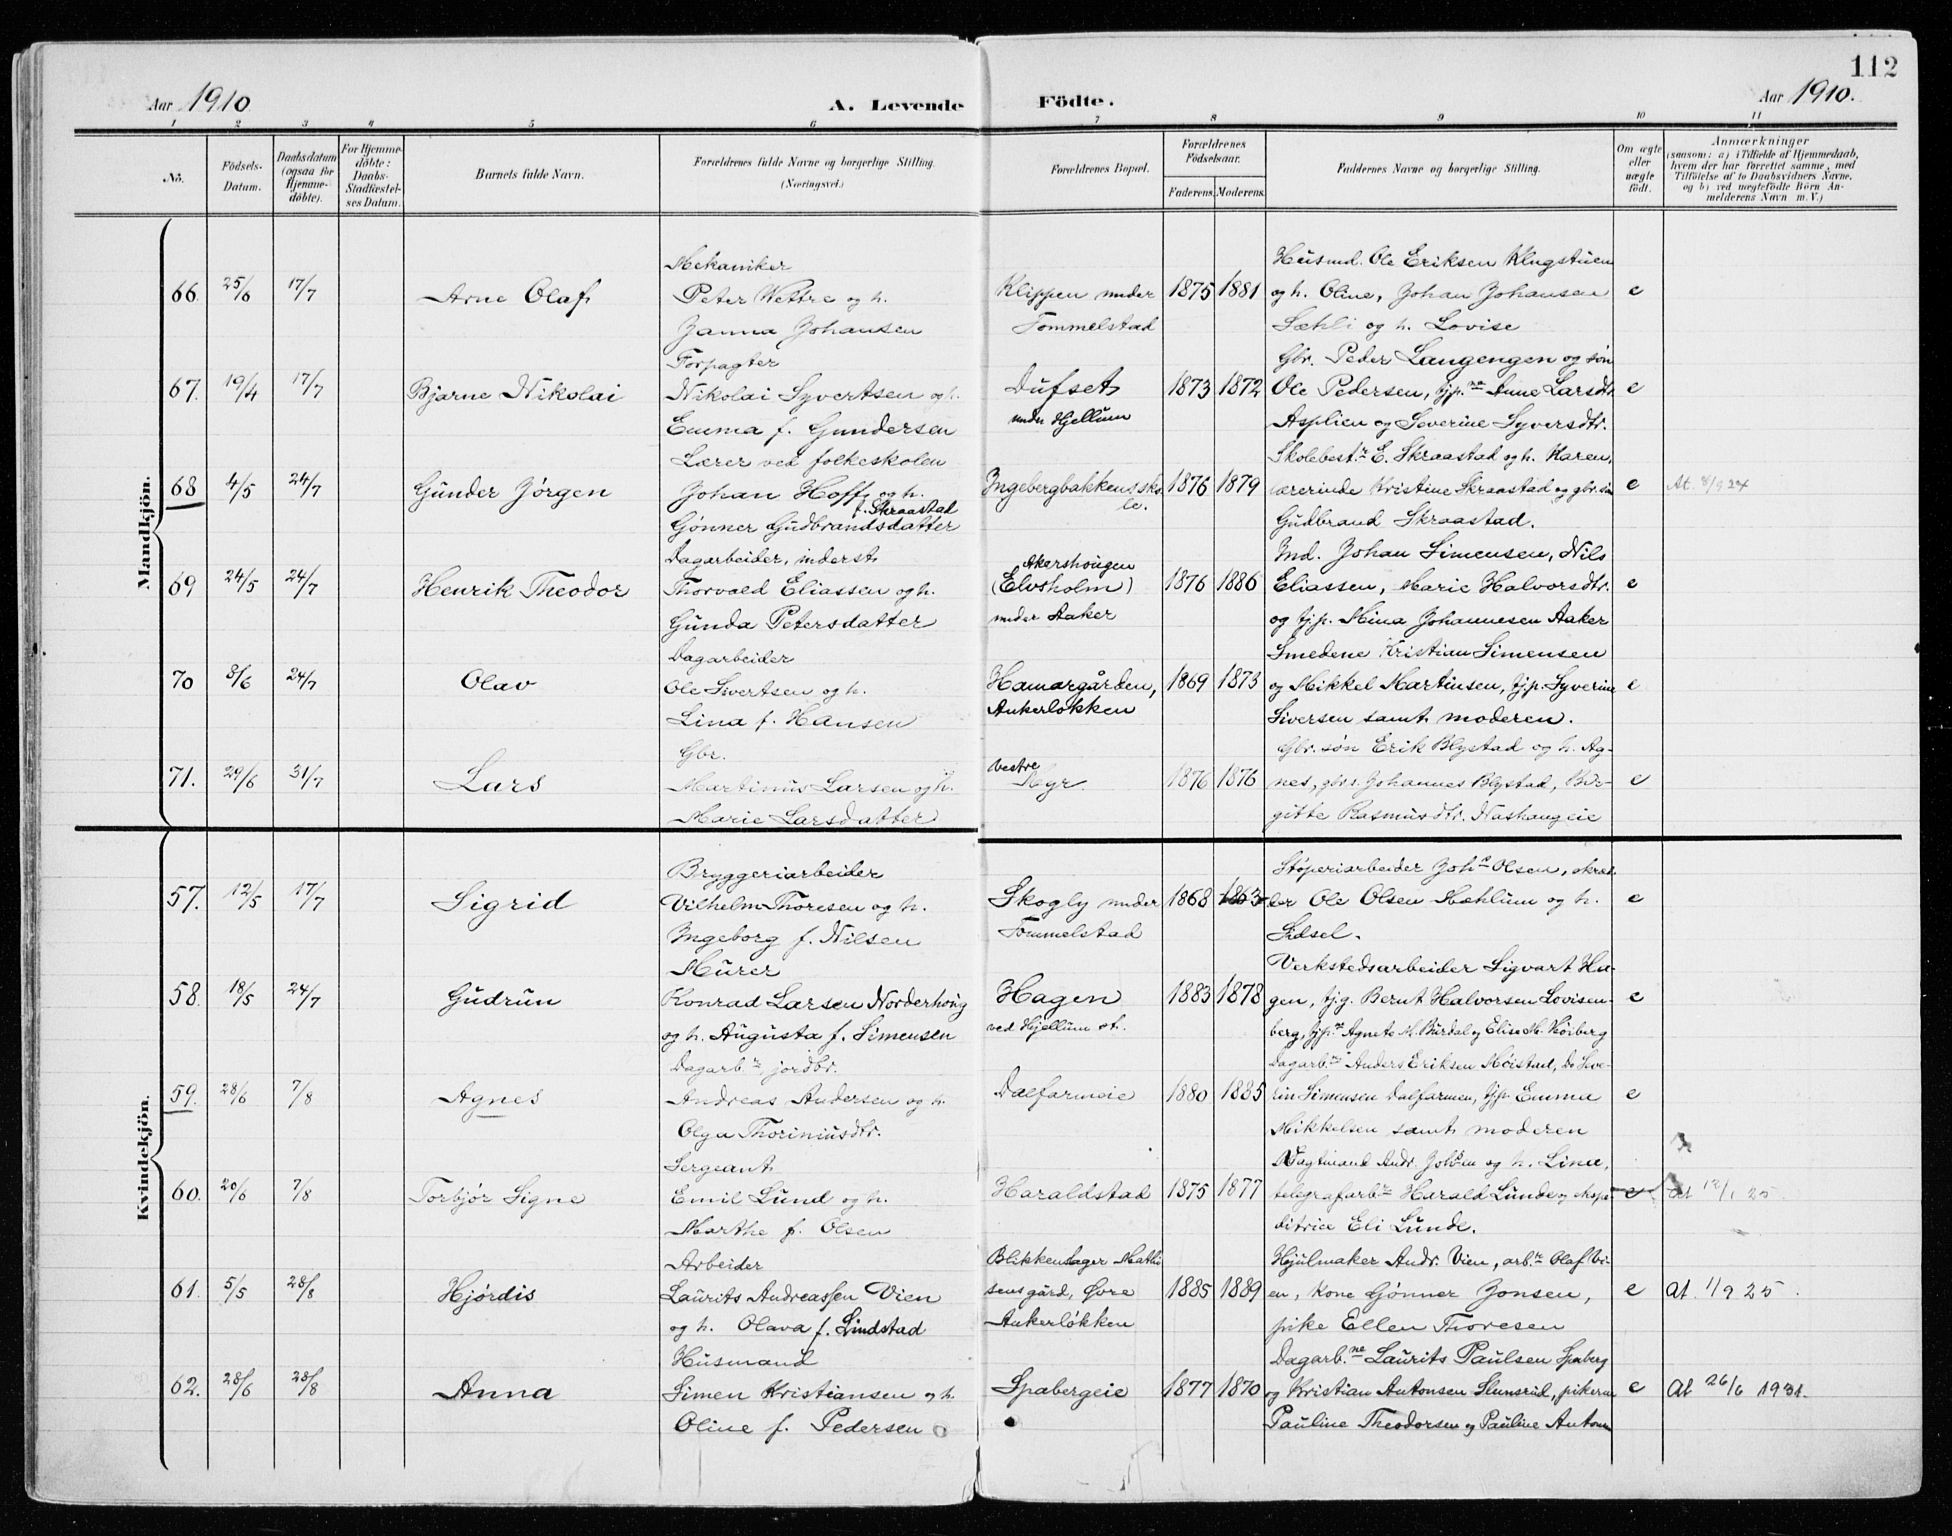 112
Aar 1910
A. Levende Födte.
Aar 1910.
1 2 3 4 5 6 7 8 9 10 11
No.
Födsels-
Datum.
Daabsdatum
(ogsaa for
Hjemme-
döbte).
For Hjemme-
döbte:
Daabs-
Stadfæstel-
ses Datum.
Barnets fulde Navn.
Forældrenes fulde Navne og borgerlige Stilling.
(Næringsvei.)
Forældrenes Bopæl.
Forældrenes
Födselsaar.
Faderens. Moderens.
Faddernes Navne og borgerlige Stilling.
Om ægte
eller
uægte
födt.
Anmærkninger
(saasom: a) i Tilfælde af Hjemmedaab,
hvem der har forrettet samme, med
Tilföielse af to Daabsvidners Navne,
og b) ved uægtefödte Börn An-
melderens Navn m. V.)
Mandkjön.
66. 25/6 17/7
Arne Olaf
Mekaniker
Peter Wettre og h.
Janna Johansen
Klippen under
Tommelstad
1875 1881
Husmd. Ole Eriksen Klugstuen
og h. Oline, Johan Johansen
Sæhli og h. Lovise
e
67. 19/4 17/7
Bjarne Nikolai
Forpagter
Nikolai Syvertsen og h.
Emma f. Gundersen
Dufset
under Hjellum
1873 1872
Gbr. Peder Langengen og søn
Ole Pedersen, tjp.ne Anne Larsdtr.
Asplien og Severine Syversdtr.
e
68 4/5 24/7
Gunder Jørgen
Lærer ved folkeskolen
Johan Hoff og h.
f. Skraastad
Gønner Gudbrandsdatter
Ingebergbakkens sko
le.
1876 1879
Skolebest.r E. Skraastad og h. Karen,
lærerinde Kristine Skraastad og gbr. søn
Gudbrand Skraastad.
e
At. 8/9 24
69 24/5 24/7
Henrik Theodor
Dagarbeider, inderst
Thorvald Eliassen og h.
Gunda Petersdatter
Akershougen
(Elvsholm)
under Aaker
1876 1886
Ind. Johan Simensen, Nils
Eliassen, Marie Halvorsdtr.
og tjp. Mina Johannesen Aaker
e
70 3/6 24/7
Olav
Dagarbeider
Ole Sivertsen og h.
Lina f. Hansen
Hamargården,
Ankerløkken
1869 1873
Smedene Kristian Simensen
og Mikkel Martinsen, tjp. Syverine
Siversen samt moderen.
e
71. 29/6 31/7
Lars
Gbr.
Martinus Larsen og h.
Marie Larsdatter
Vestre
Myr
1876 1876
Gbr. søn Erik Blystad og h. Ag-
nes, gbr.s. Johannes Blystad, Bir-
gitte Rasmusdtr. Nashaugeie
e
Kvindekjön.
57. 12/5 17/7
Sigrid
Bryggeriarbeider
Vilhelm Thoresen og h.
Ingeborg f. Nilsen
Skogly under
Tommelstad
1868 1863
Støperiarbeider Joh.s Olsen, skræd-
der Ole Olsen Mæhlum og h.
Sidsel.
e
58. 18/5 24/7
Gudrun
Murer
Konrad Larsen Norderhoug
og h. Augusta f. Simensen
Hagen
ved Hjellum st.
1883 1878
Verkstedsarbeider Sigvart Ha-
gen, tjg. Bernt Halvorsen Lovisen-
berg, tjp.ne Agnete M. Burdal og Elise M. Høiberg
e
59. 28/6 7/8
Agnes
Dagarb.r jordbr.
Andreas Andersen og h.
Olga Thoriniusdtr.
Dalfarmeie
1880 1885
Dagarb.ne Anders Eriksen Moistad, Do Seve-
rin Simensen Dalfarmen, tjp. Emma
Mikkelsen samt moderen
e
60. 20/6 7/8
Torbjør Signe
Sergeant
Emil Lund og h.
Marthe f. Olsen
Haraldstad
1875 1877
Vagtmand Andr. og h. Lina,
telegrafarb.r Harald Lunde og
ditrice Eli Lunde.
e
at 12/1 25
61. 5/5 28/8
Hjørdis
Arbeider
Laurits Andreassen Vien
og h. Olava f. Lindstad
Blikkenslager Mathi
sens gård, Øvre
Ankerløkken
1885 1889
Hjulmaker Andr. Vien, arb.r Olaf Vi-
en, Kone Gønner Jonsen,
pike Ellen Thoresen
e
at. 1/9 25.
62. 28/6 28/8
Anna
Husmand
Simen Kristiansen og h.
Oline f. Pedersen
Spabergeie
1877 1870
Dagarb.ne Laurits Paulsen Spaberg
og Kristian Antonsen Slunsrud, pikerne
Pauline Theodorsen og Pauline Antons
e
At 26/6 1931.